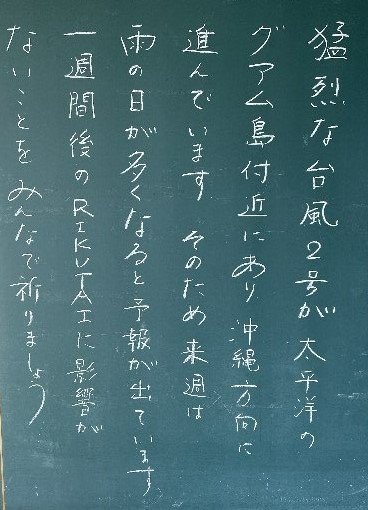 猛烈な台風2号が太平洋の
グアム島付近にあり沖縄方向に
進んでいます そのため来週は
雨の日が多くなると予報が出ています
一週間後のRIKUTAIに影響が
ないことをみんなで祈りましょう